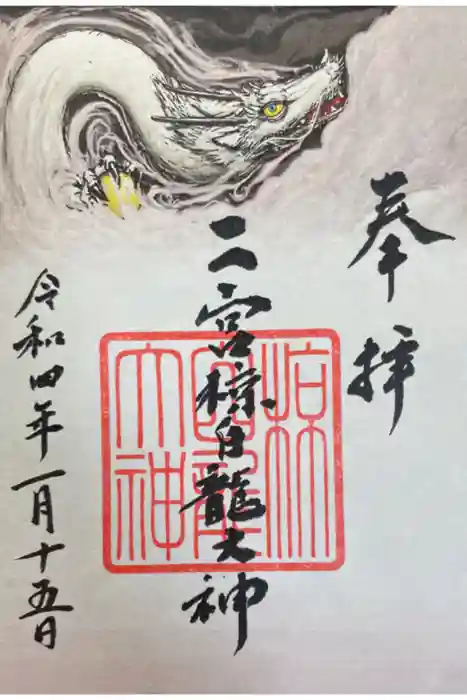 奉拝
二宮椋白龍大神
椋白龍大神
令和四年一月十五日